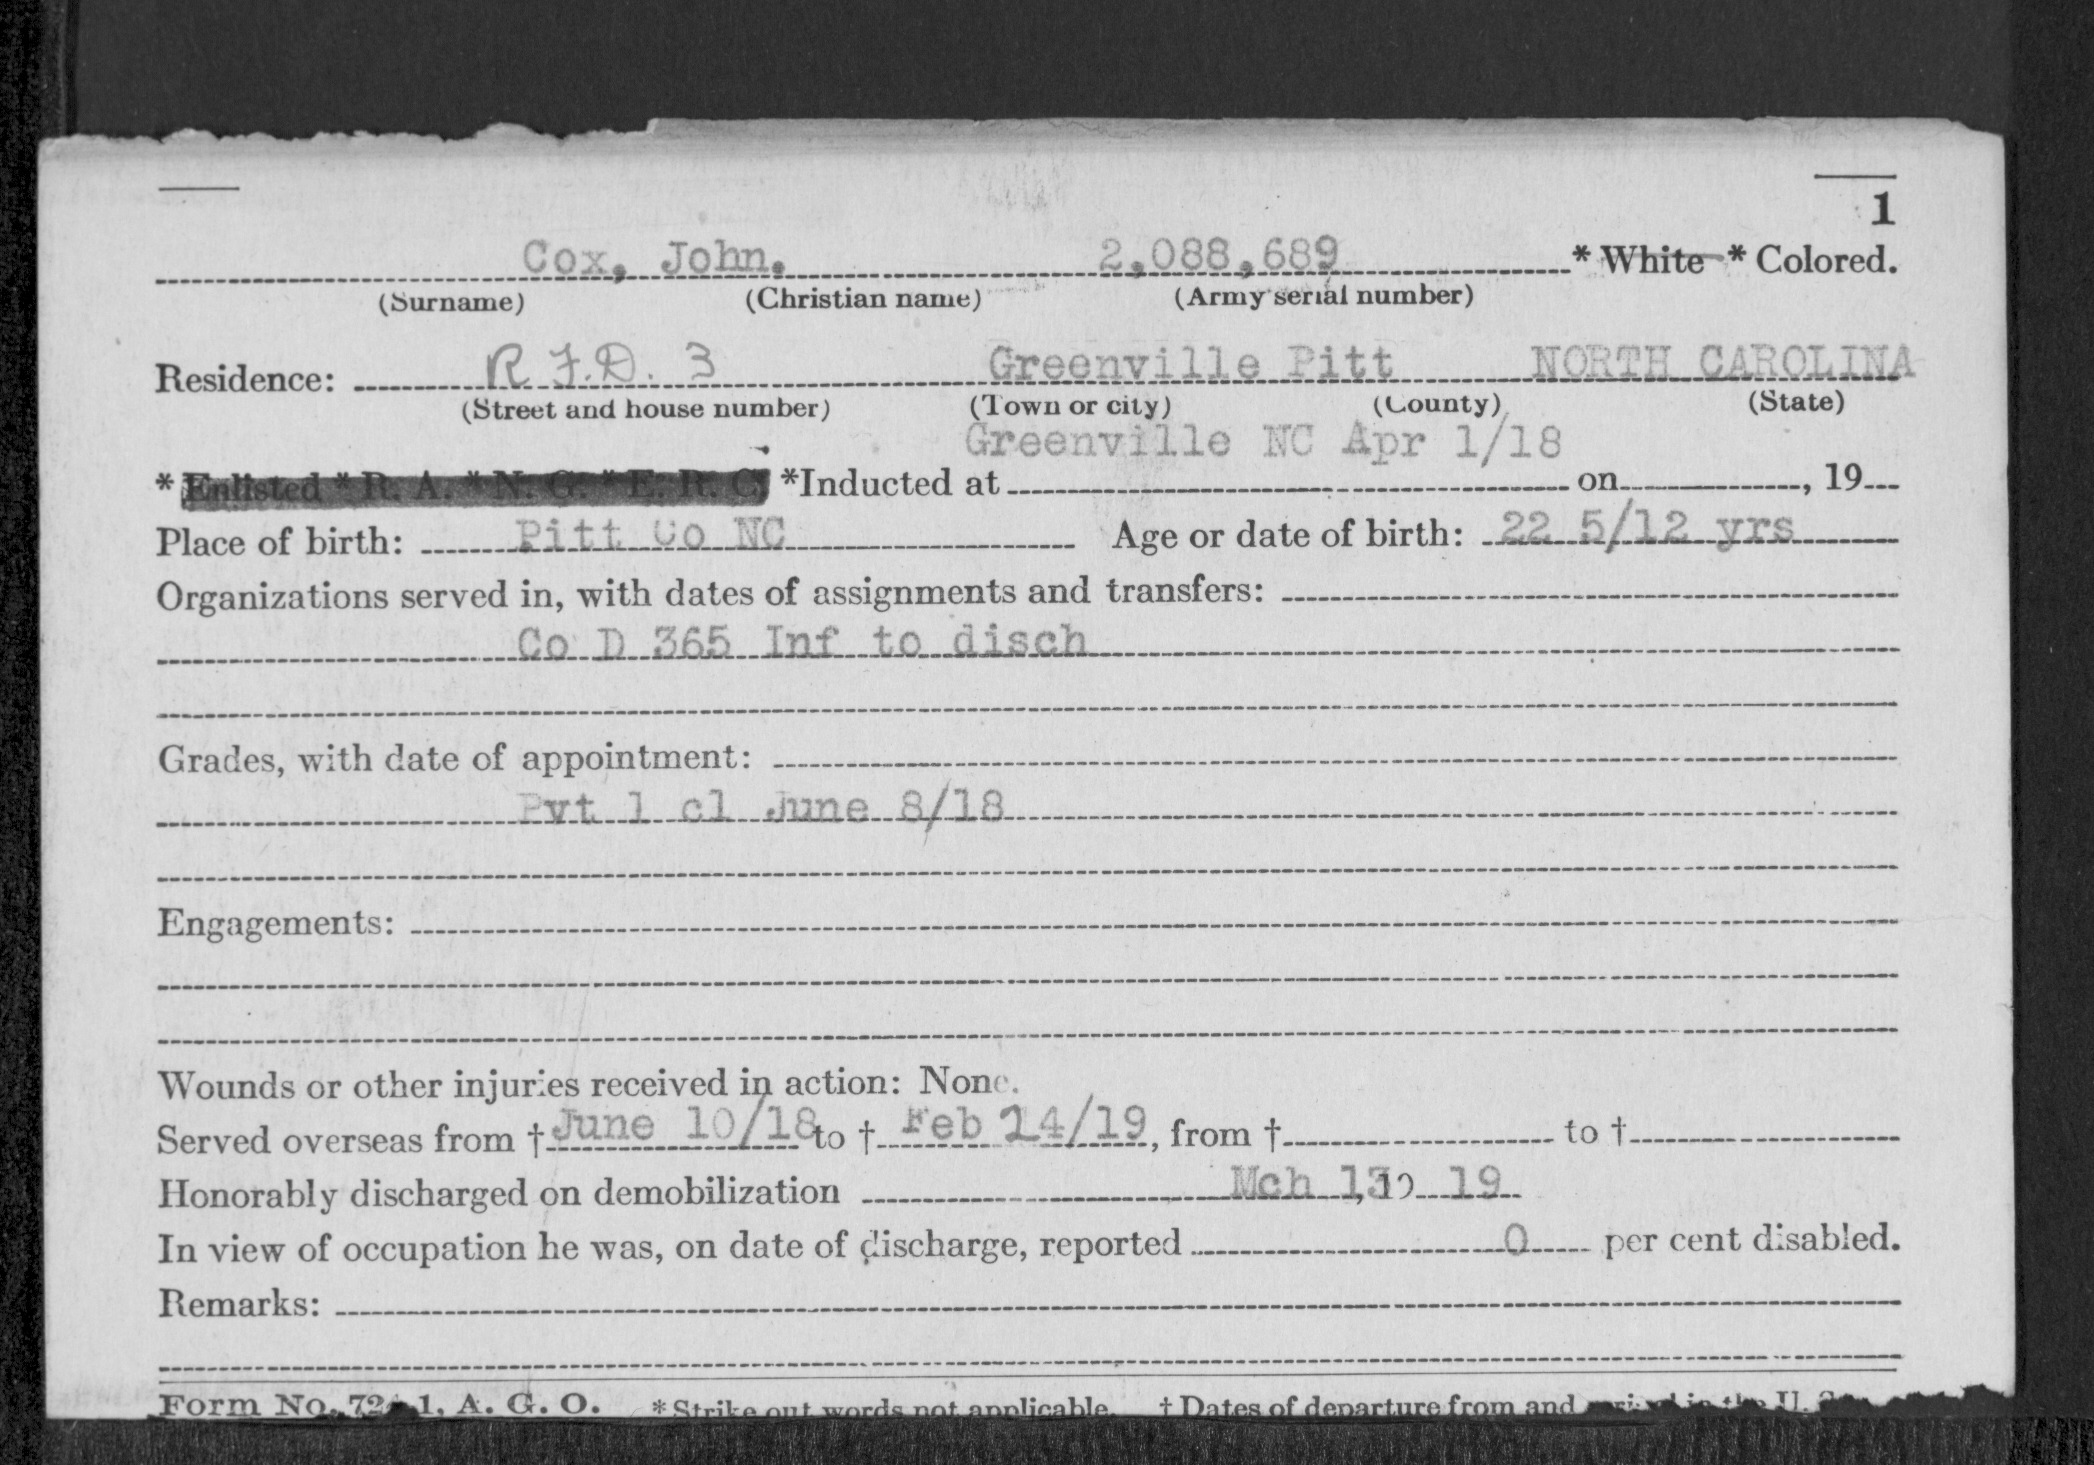 1
Cox, John. 2,088,689 * White * Colored.
(Surname) (Christian name) (Army serial number)
Residence: R.F.D. 3 Greenville Pitt NORTH CAROLINA
(Street and house number) (Town or city) (County) (State)
Greenville NC Apr 1/18
* Enlisted * R. A. * N. G. * E. R. C. *Inducted at on , 19
Place of birth: Pitt Co NC Age or date of birth: 22 5/12 yrs
Organizations served in, with dates of assignments and transfers:
Co D 365 Inf to disch
Grades, with date of appointment:
Pvt 1 cl June 8/18
Engagements:
Wounds or other injuries received in action: None.
Served overseas from † June 10/18 to † Feb 24/19, from † to †
Honorably discharged on demobilization Mch 13, 19 19
In view of occupation he was, on date of discharge, reported 0 per cent disabled.
Remarks:
Form No. 724-1, A. G. O. * Strike out words not applicable. † Dates of departure from and arrival in the U. S.